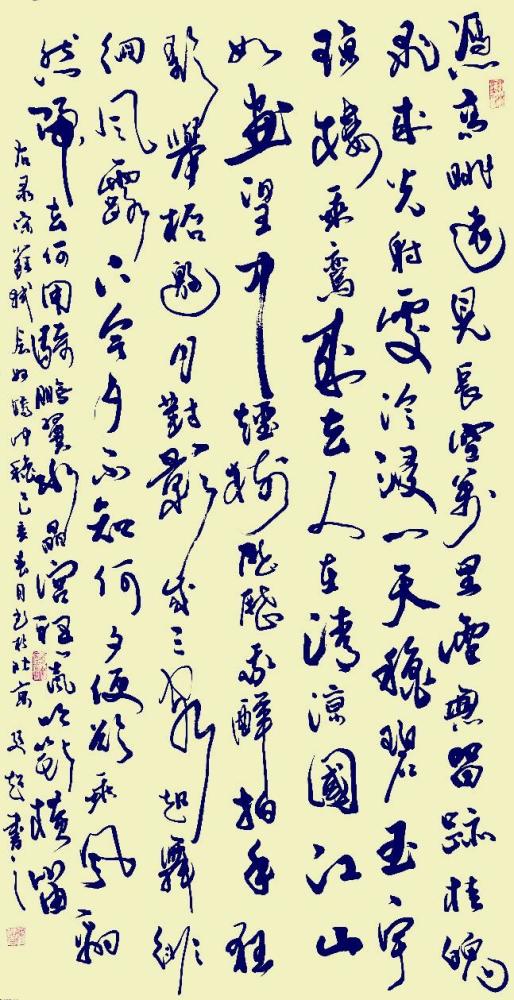 憑高眺遠見長空萬里雲無留跡桂魄
飛來光射處冷浸一天秋碧玉宇
瓊樓乘鸞來去人在清涼國江山
如畫望中煙樹歷歷我醉拍手狂
歌舉杯邀月對影成三客起舞徘
徊風露下今夕不知何夕便欲乘風翻
然歸去何用騎鵬翼水晶宮裡一聲吹斷橫笛
右录宋蘇軾念奴嬌中秋己亥春月於北京書之